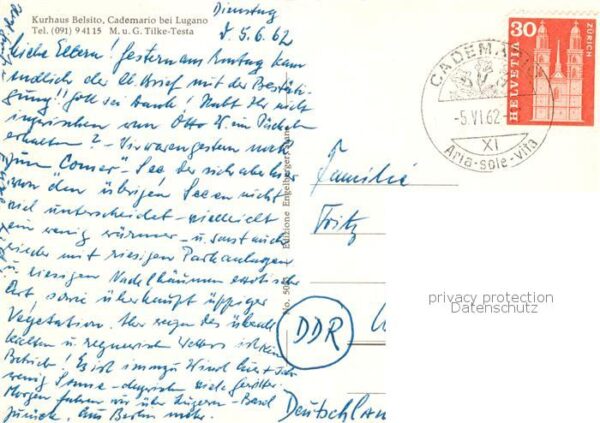 Kurhaus Belsito, Cademario bei Lugano
Tel. (091) 9 41 15 M. u. G. Tilke-Testa
Dienstag
d. 5.6.62
Liebe Eltern! Gestern am Montag kam
endlich der Brief mit der Bestäti-
gung!! Gott sei Dank! Habt Ihr nicht
inzwischen von Otto W. ein Päckchen
erhalten? – Wir waren gestern noch
zum "Comer"-See der sich aber hier
von den übrigen Seen nicht
viel unterscheidet – vielleicht
ein wenig wärmer – u. sonst auch
wieder mit riesigen Parkanlagen
u. riesigen Nadelbäumen exotischer
Art, sowie überhaupt üppiger
Vegetation. Hier wegen des
kühlen u. regnerischen Wetters ist kein
Betrieb! Es ist immer Wind hier + sehr
wenig Sonne – dazwischen viele Gewitter.
Morgen fahren wir über Luzern – Basel
zurück. Aus Berlin mehr.
No. 50 Edizione Engelberger
Familie
Fritz
DDR
Deutschlan
30
HELVETIA
ZÜRICH
CADEMARIO
-5.VI.62-
XI
Aria-sole-vita
privacy protection
Datenschutz